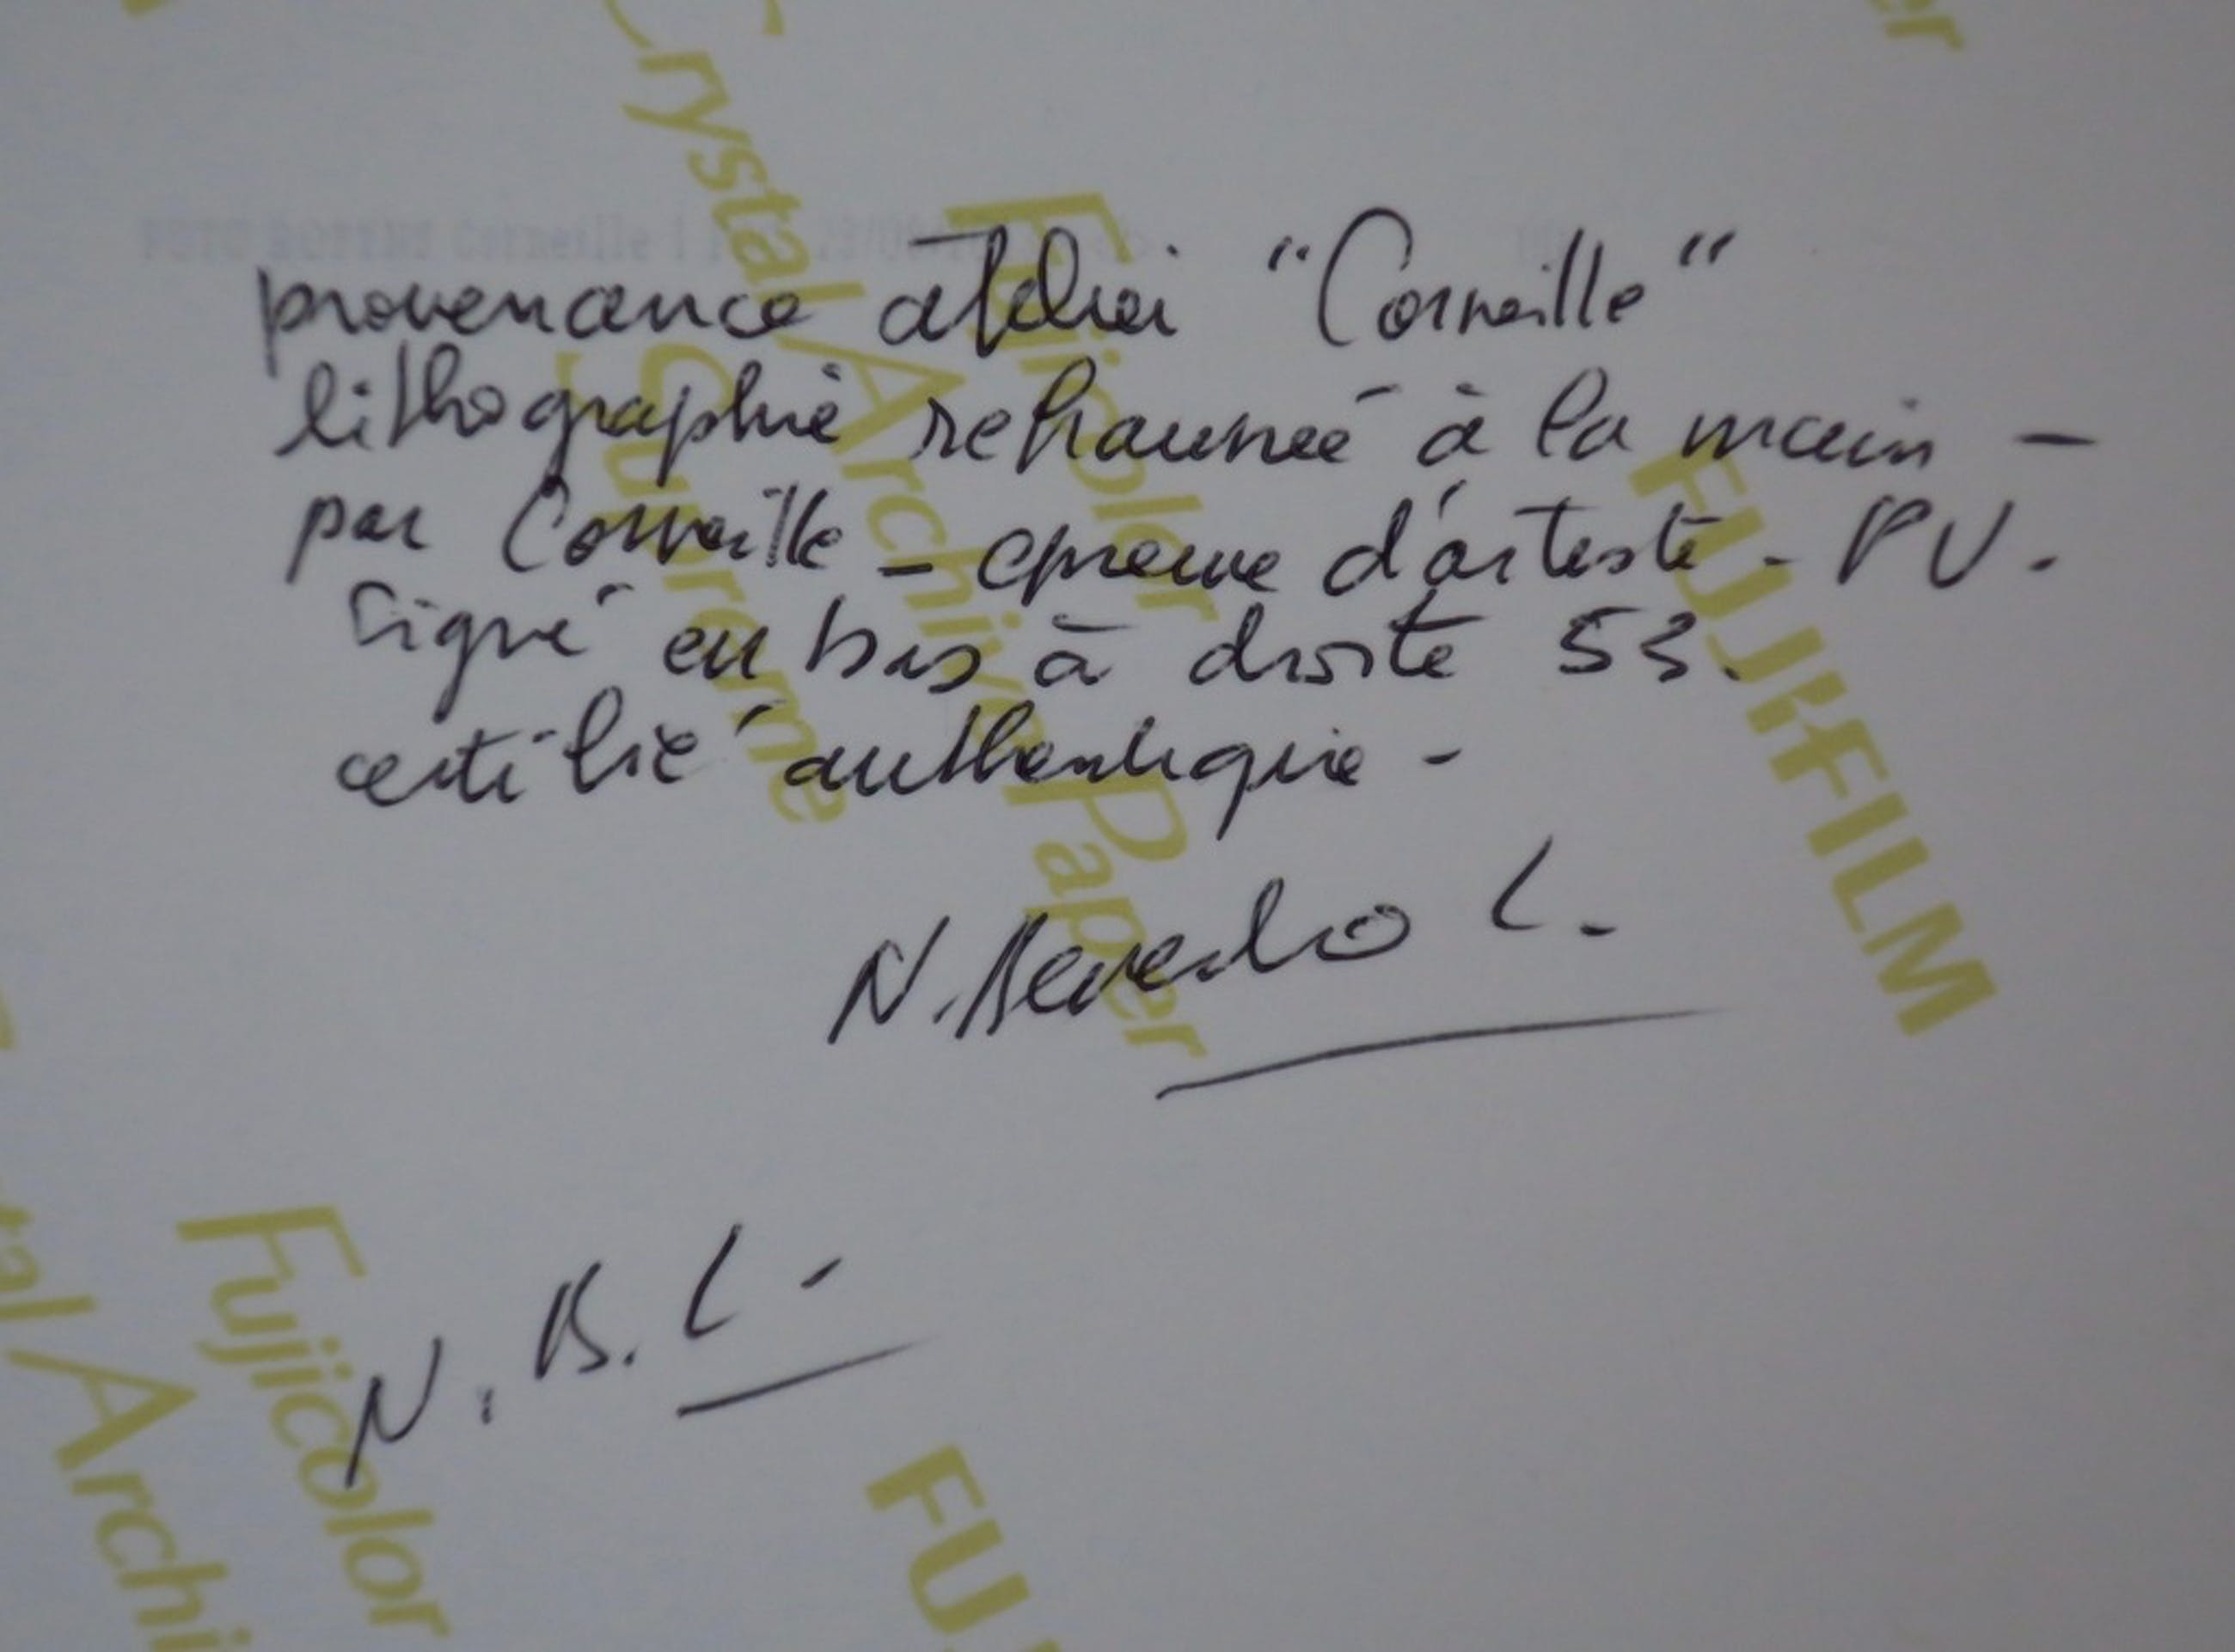 provenance atelier "Corneille"
lithographie rehaussée à la main -
par Corneille - epreuve d'artiste - PV.
signé en bas à droite 53.
certifié authentique -
N. L.
N. B. L -
Crystal Archive Paper
Supreme
Fujicolor
FUJIFILM
Fujicolor
tal Archi
FU
er